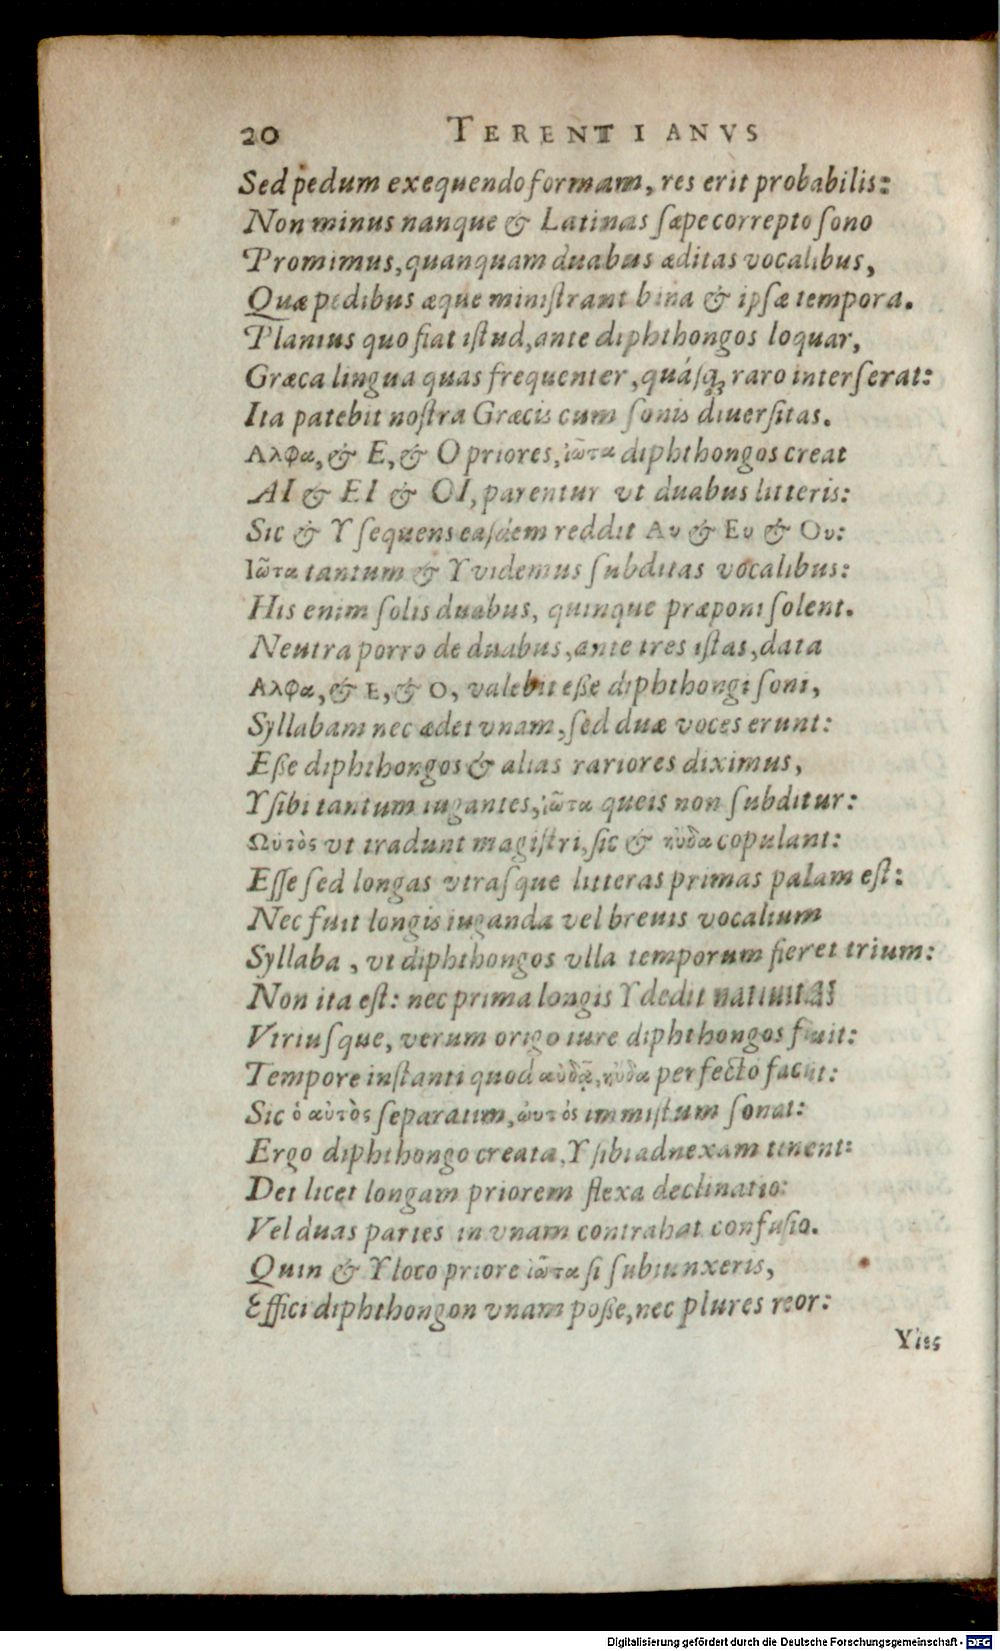 20 TERENTIANVS
Sed pedum exequendo formam, res erit probabilis:
Non minus nanque & Latinas sæpe correpto sono
Promimus, quanquam duabus æditas vocalibus,
Quæ pedibus æque ministrant bina & ipsæ tempora.
Planius quo fiat istud, ante diphthongos loquar,
Græca lingua quas frequenter, quásq; raro interserat:
Ita patebit nostra Græcis cum sonis diuersitas.
Αλφα, & E, & O priores, ἰῶτα diphthongos creat
AI & EI & OI, parentur vt duabus litteris:
Sic & Y sequens easdem reddit Αυ & Ευ & Ου:
Ἰῶτα tantum & Y videmus subditas vocalibus:
His enim solis duabus, quinque præponi solent.
Neutra porro de duabus, ante tres istas, data
Αλφα, & E, & O, valebit eße diphthongi soni,
Syllabam nec ædet vnam, sed duæ voces erunt:
Eße diphthongos & alias rariores diximus,
Y sibi tantum iugantes, ἰῶτα queis non subditur:
Ωὐτὸς vt tradunt magistri, sic & ηὐδα copulant:
Esse sed longas vtrasque litteras primas palam est:
Nec fuit longis iuganda vel breuis vocalium
Syllaba, vt diphthongos vlla temporum fieret trium:
Non ita est: nec prima longis Y dedit natiuitas
Vtriusque, verum origo iure diphthongos fuit:
Tempore instanti quod αὐδᾷ, ηὐδα perfecto facit:
Sic ὁ αὐτὸς separatim, ὡυτὸς immistum sonat:
Ergo diphthongo creata, Y sibi adnexam tinent:
Det licet longam priorem flexa declinatio:
Vel duas partes in vnam contrahat confusio.
Quin & Y loco priore ἰῶτα si subiunxeris,
Effici diphthongon vnam poße, nec plures reor:
Yies
Digitalisierung gefördert durch die Deutsche Forschungsgemeinschaft - DFG